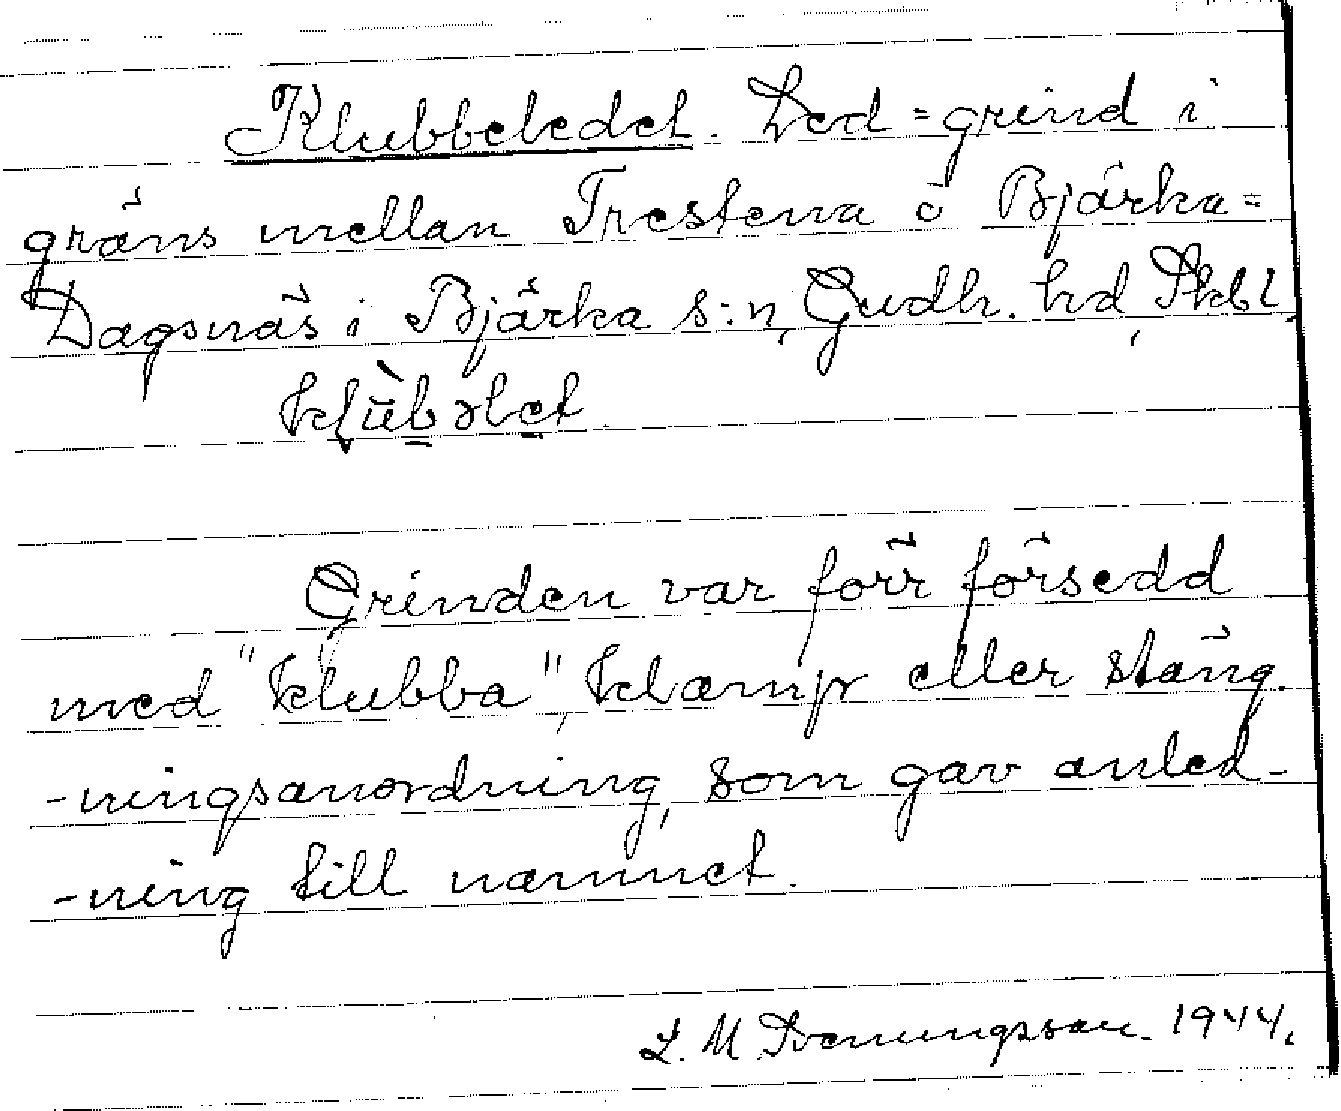 Klubbeledet. Led = grind i
gräns mellan Trestena o Bjärka=
Dagsnäs i Bjärka s:n, Gudh. hd, Skbl.
Grinden var förr försedd
med "klubba", klamp eller stäng-
-ningsanordning, som gav anled-
-ning till namnet.
L. M. Svenungsson. 1944.